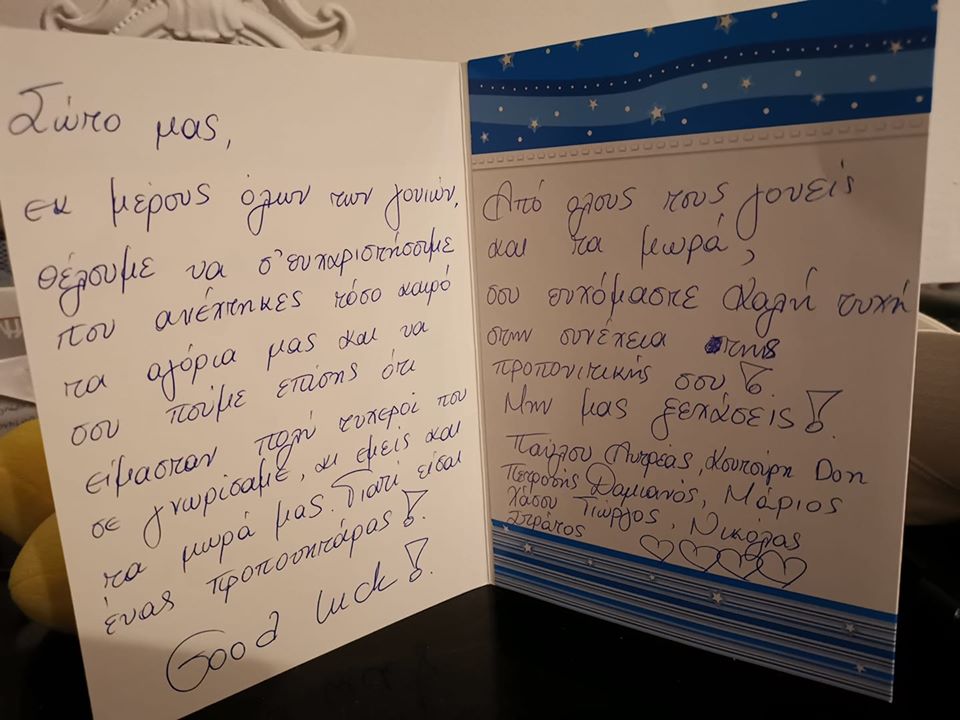 Σώτο μας,
εκ μέρους όλων των γονιών,
θέλουμε να σ'ευχαριστήσουμε
που ανέχτηκες τόσο καιρό
τα αγόρια μας και να
σου πούμε επίσης ότι
είμασταν πολή τυχεροί που
σε γνωρίσαμε, κι εμείς και
τα μωρά μας. Γιατί είσαι
ένας προπονητάρας!
Good luck!
Από ολους τους γονείς
και τα μωρά,
σου ευχόμαστε καλή τυχή
στην συνέχεια της
προπονιτικής σου!
Μην μας ξεχάσεις!
Παύλου Αντρέας,
Πετρο Δαμιανός, Μάριος
Χάσου Γιώργος, Νικόλας
Στράτος